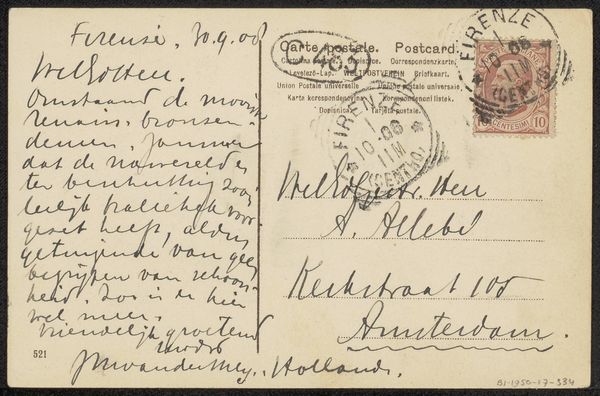 Firenze, 30.9.08
WelEdHeer.
Omstaand de mooiste
renaiss. bronzen
deuren. Jammer
dat de
ter bezichtiging zoo'n
leelijk traliehek voor
gezet heeft, aldus
getuigende van geen
begrijpen van schoon-
heid. Zoo is er hier
wel meer.
Vriendelijk groetend
JHvanderMey.
521
463
Carte postale. Postcard.
Cartolina Dopisnice. Correspondenzkarte.
Levelező-Lap. WELTPOSTVEREIN Briefkaart.
Union Postale universelle Unión postale universale
Karte korespondencyjna Korrespondent listek.
Dopisnica Tarjeta postal.
FIRENZE
1
10 08
11M
(CENTRO)
FIRENZE
1
10 08
11M
(CENTRO)
CENTESIMI 10
WelEdGestr. Heer
A. Allebé
Kerkstraat 105
Amsterdam.
Holland.
BI-1950-17-334